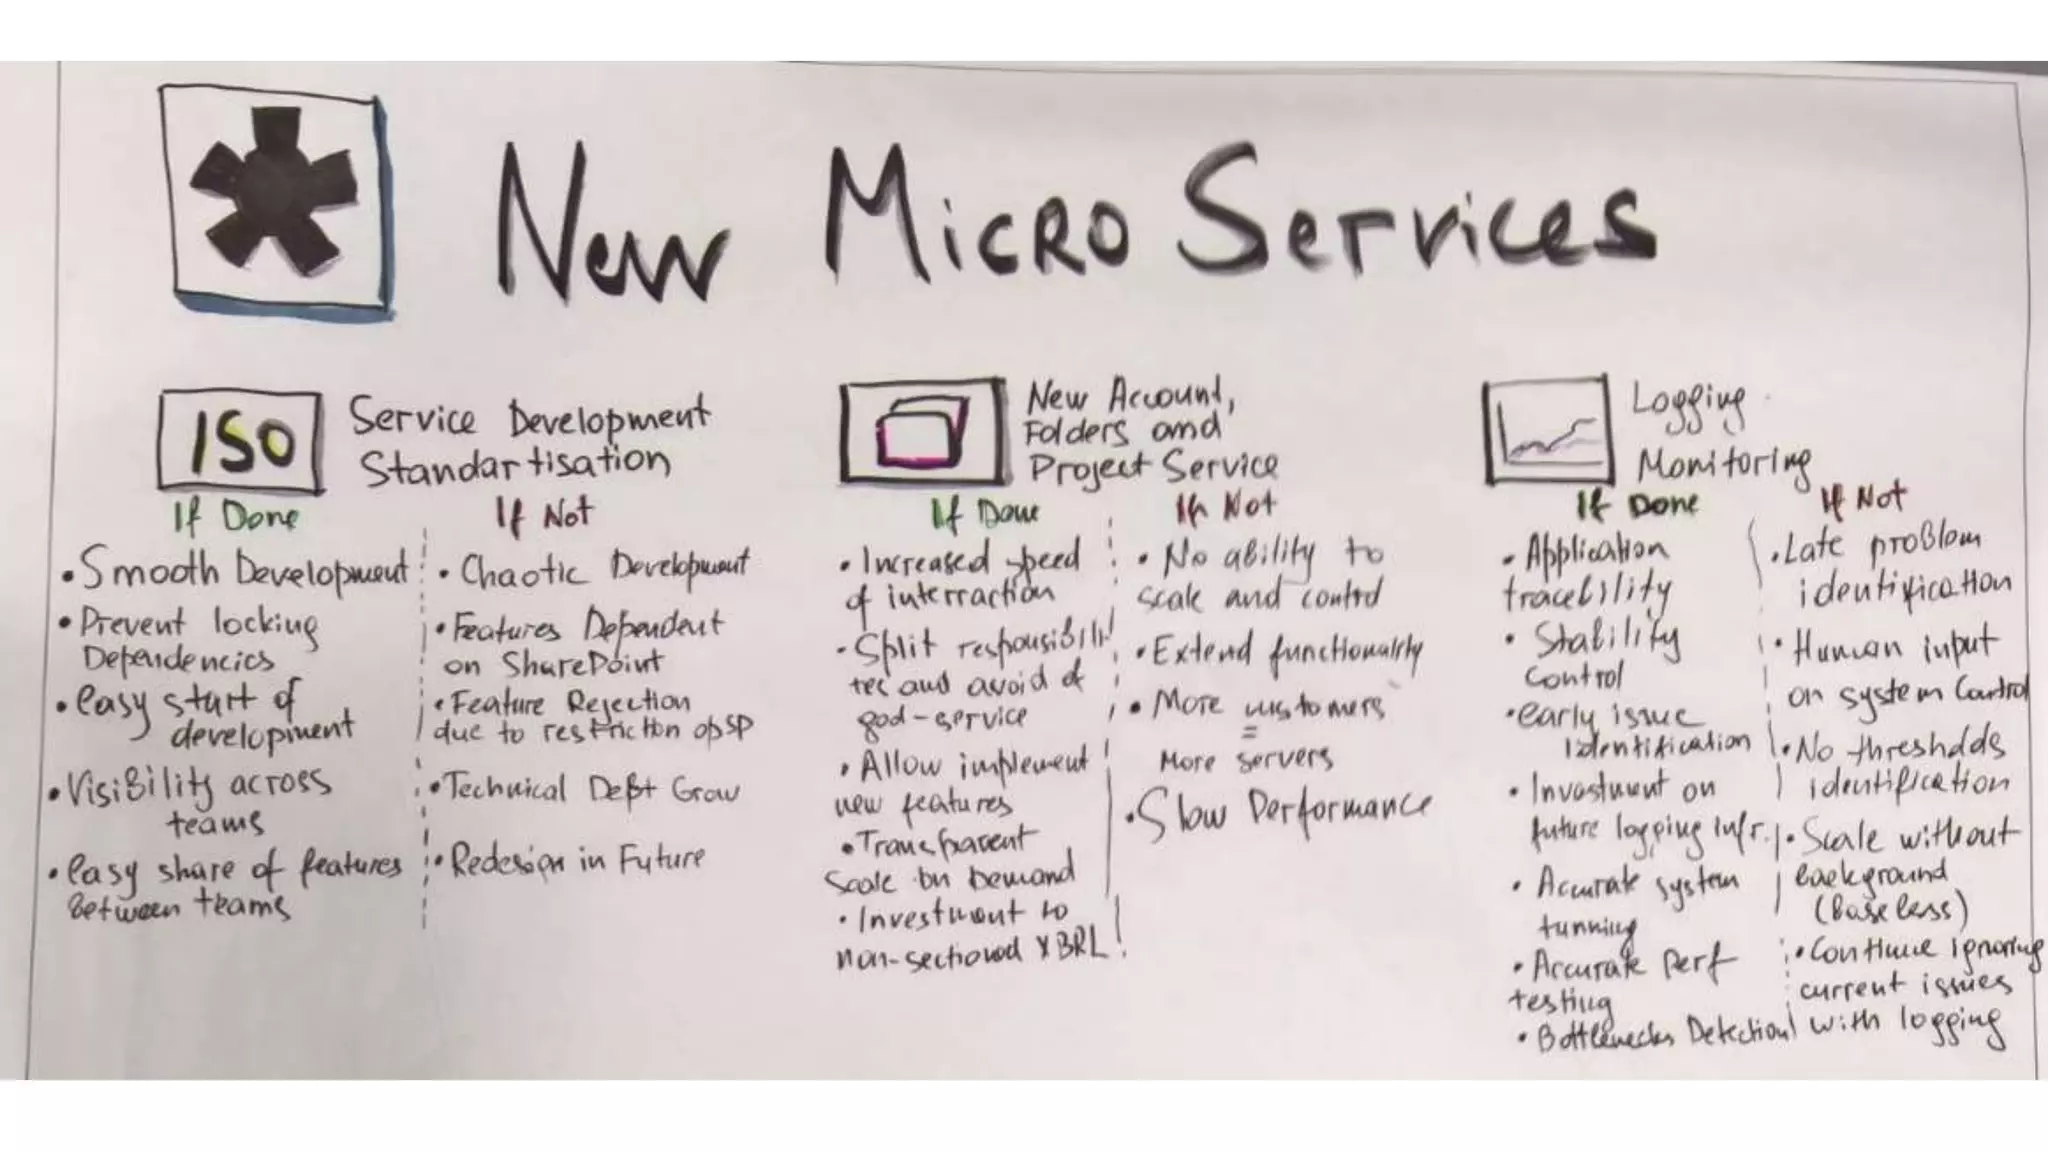 New Micro Services
ISO
Service Development
Standartisation
If Done
• Smooth Development
• Prevent locking
Dependencies
• easy start of
development
• Visibility across
teams
• easy share of features
between teams
If Not
• Chaotic Development
• Features Dependent
on SharePoint
• Feature Rejection
due to restriction of SP
• Technical Debt Grow
• Redesign in Future
New Account,
Folders and
Project Service
If Done
• Increased speed
of interraction
• Split responsibili
ties and avoid of
god-service
• Allow implement
new features
• Transparent
Scale on Demand
• Investment to
non-sectioned XBRL!
If Not
• No ability to
scale and control
• Extend functionality
• More customers
=
More servers
• Slow Performance
Logging
Monitoring
If Done
• Application
tracebility
• Stability
control
• early issue
identification
• Investment on
future logging infr.
• Accurate system
tunning
• Accurate perf
testing
• Bottlenecks Detection
If Not
• Late problem
identification
• Human input
on system Control
• No thresholds
identification
• Scale without
background
(baseless)
• Continue ignoring
current issues
with logging